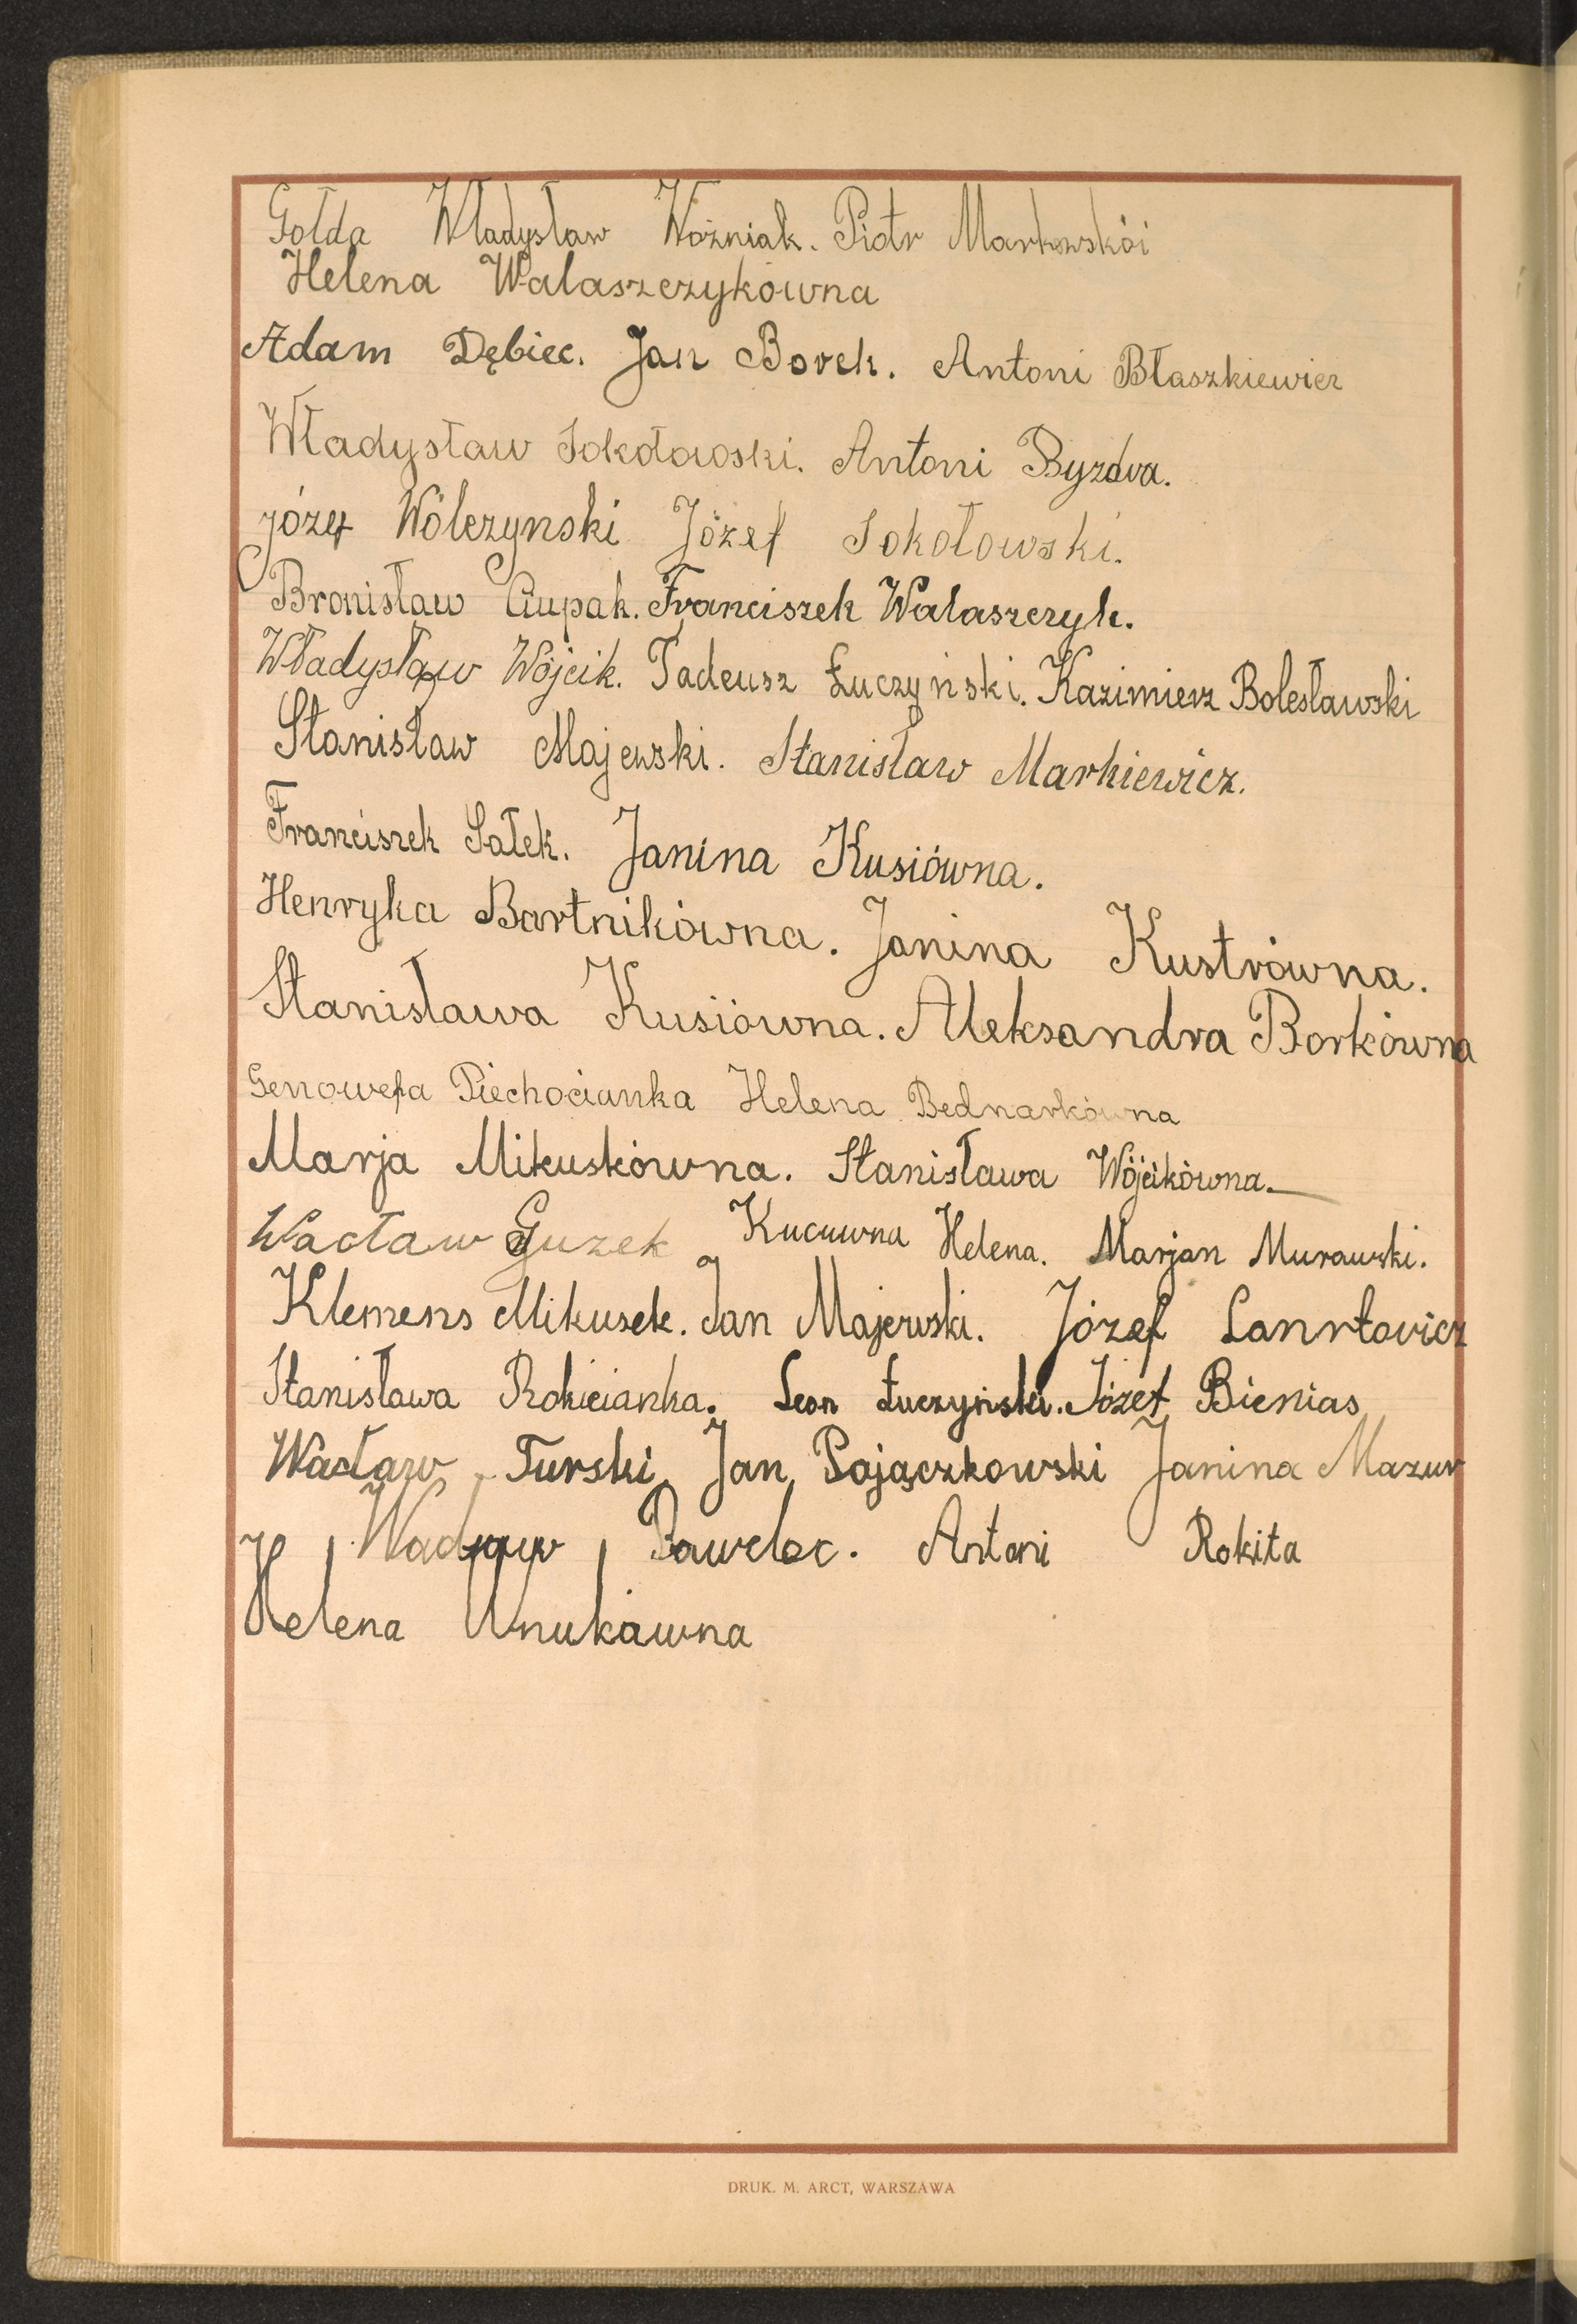 Gołda Władysław Woźniak. Piotr Markowskói
Helena Walaszczykówna
Adam Dębiec. Jan Borek. Antoni Błaszkiewicz
Władysław Sokołowski. Antoni Byzdra.
Józef Wólczynski Józef Sokołowski.
Bronisław Ciupak. Franciszek Walaszczyk.
Władysław Wójcik. Tadeusz Łuczyński. Kazimierz Bolesławski
Stanisław Majewski. Stanisław Markiewicz.
Franciszek Sałek. Janina Kusiówna.
Henryka Bartnikówna. Janina Kustrówna.
Stanisława Kusiówna. Aleksandra Borkówna
Genowefa Piechocianka Helena Bednarkówna
Marja Mikuskówna. Stanisława Wójcikówna.
Wacław Guzek Kucuwna Helena. Marjan Murawski.
Klemens Mikusek. Jan Majewski. Józef Lanrtowicz
Stanisława Rokicianka. Leon Łuczyński. Józef Bienias
Wacław Turski, Jan Pajączkowski Janina Mazur
Pawelec. Antoni Rokita
Helena Wnukówna
DRUK. M. ARCT, WARSZAWA